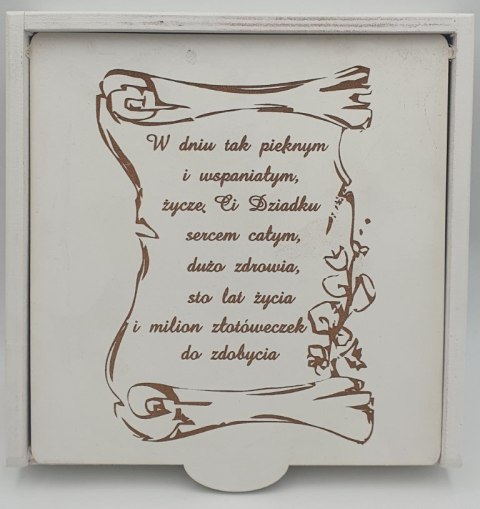 W dniu tak pięknym
i wspaniałym,
życzę Ci Dziadku
sercem całym,
dużo zdrowia,
sto lat życia
i milion złotóweczek
do zdobycia